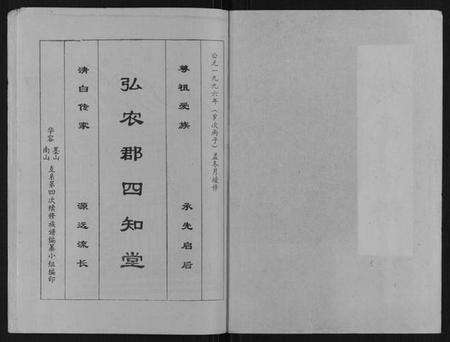 公元一九九六年（岁次丙子）孟冬月续修
尊祖爱族　承先启后
弘农郡四知堂
清白传家　源远流长
华容
墨山
南山
支系第四次续修族谱编纂小组编印